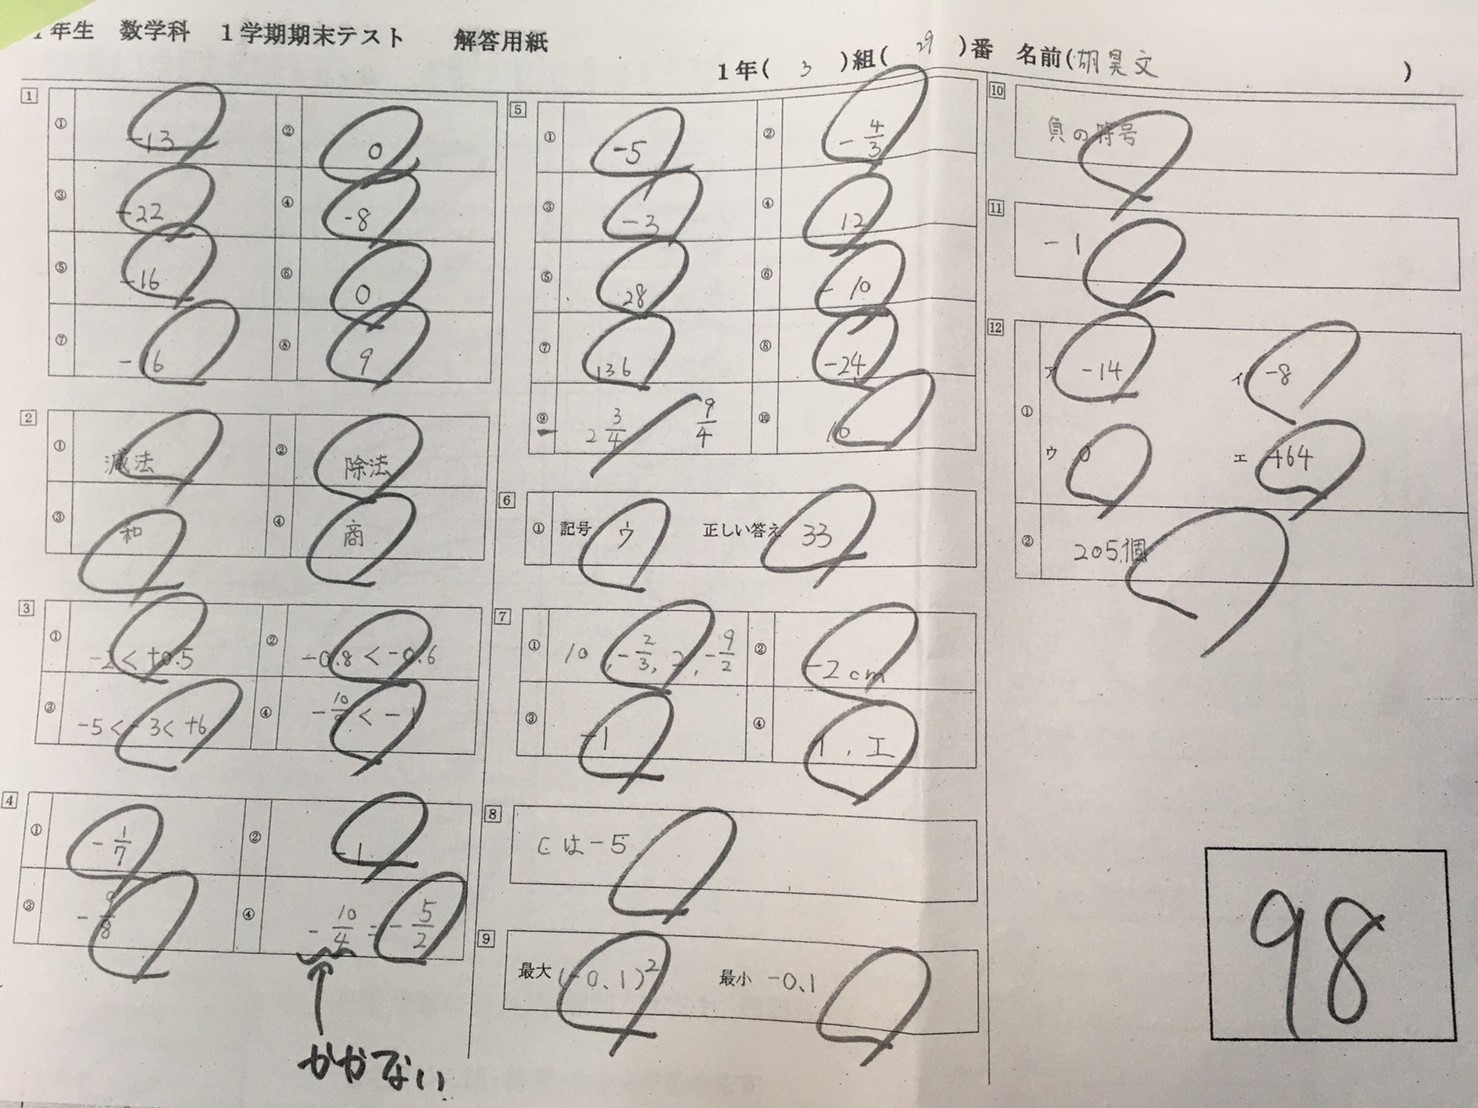 1年生 数学科 1学期期末テスト 解答用紙
1年( 3 )組( 29 )番 名前(胡昊文 )
1
① -13 ② 0
③ -22 ④ -8
⑤ -16 ⑥ 0
⑦ -16 ⑧ 9
2
① 減法 ② 除法
③ 和 ④ 商
3
① -2 < +0.5 ② -0.8 < -0.6
③ -5 < -3 < +6 ④
4
① -1/7 ②
③ -9/8 ④ -10/4 = -5/2
かかない
5
① -5 ② -4/3
③ -3 ④ 12
⑤ 28 ⑥ -10
⑦ 136 ⑧ -24
⑨ - 2 3/4 9/4 ⑩ 16
6
① 記号 ウ 正しい答え 33
7
① 10, -2/3, 2, -9/2 ② -2cm
③ -1 ④ イ, エ
8
Cは-5
9
最大 (-0.1)² 最小 -0.1
10
負の符号
11
-1
12
① ア -14 イ -8
ウ 0 エ +64
② 205個
98